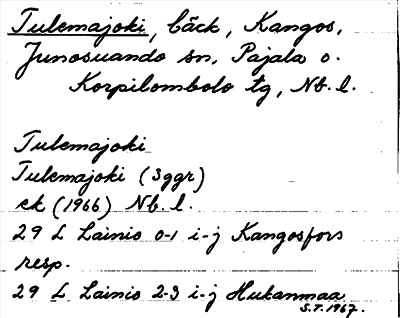 Tulemajoki, bäck, Kangos,
Junosuando sn, Pajala o.
Korpilombolo tg, Nb. l.
Tulemajoki
Tulemajoki (3ggr)
ek (1966) Nb. l.
29 L Lainio 0-1 i-j Kangosfors
resp.
29 L Lainio 2-3 i-j Hukanmaa
S.T. 1967.